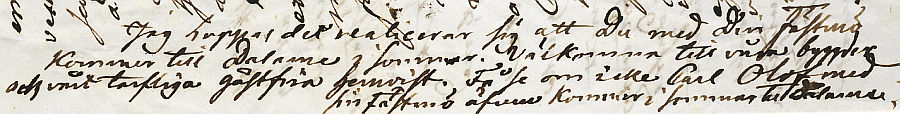 Jag hoppas det realicerar sig att Du med Din Fästmö
kommer till Dalarne i sommar. Välkomna till våra bygder
och vårt tarfliga gästfria hemvist. Få se om icke Carl Olof med
sin Fästmö äfven kommer i sommar till Dalarne.